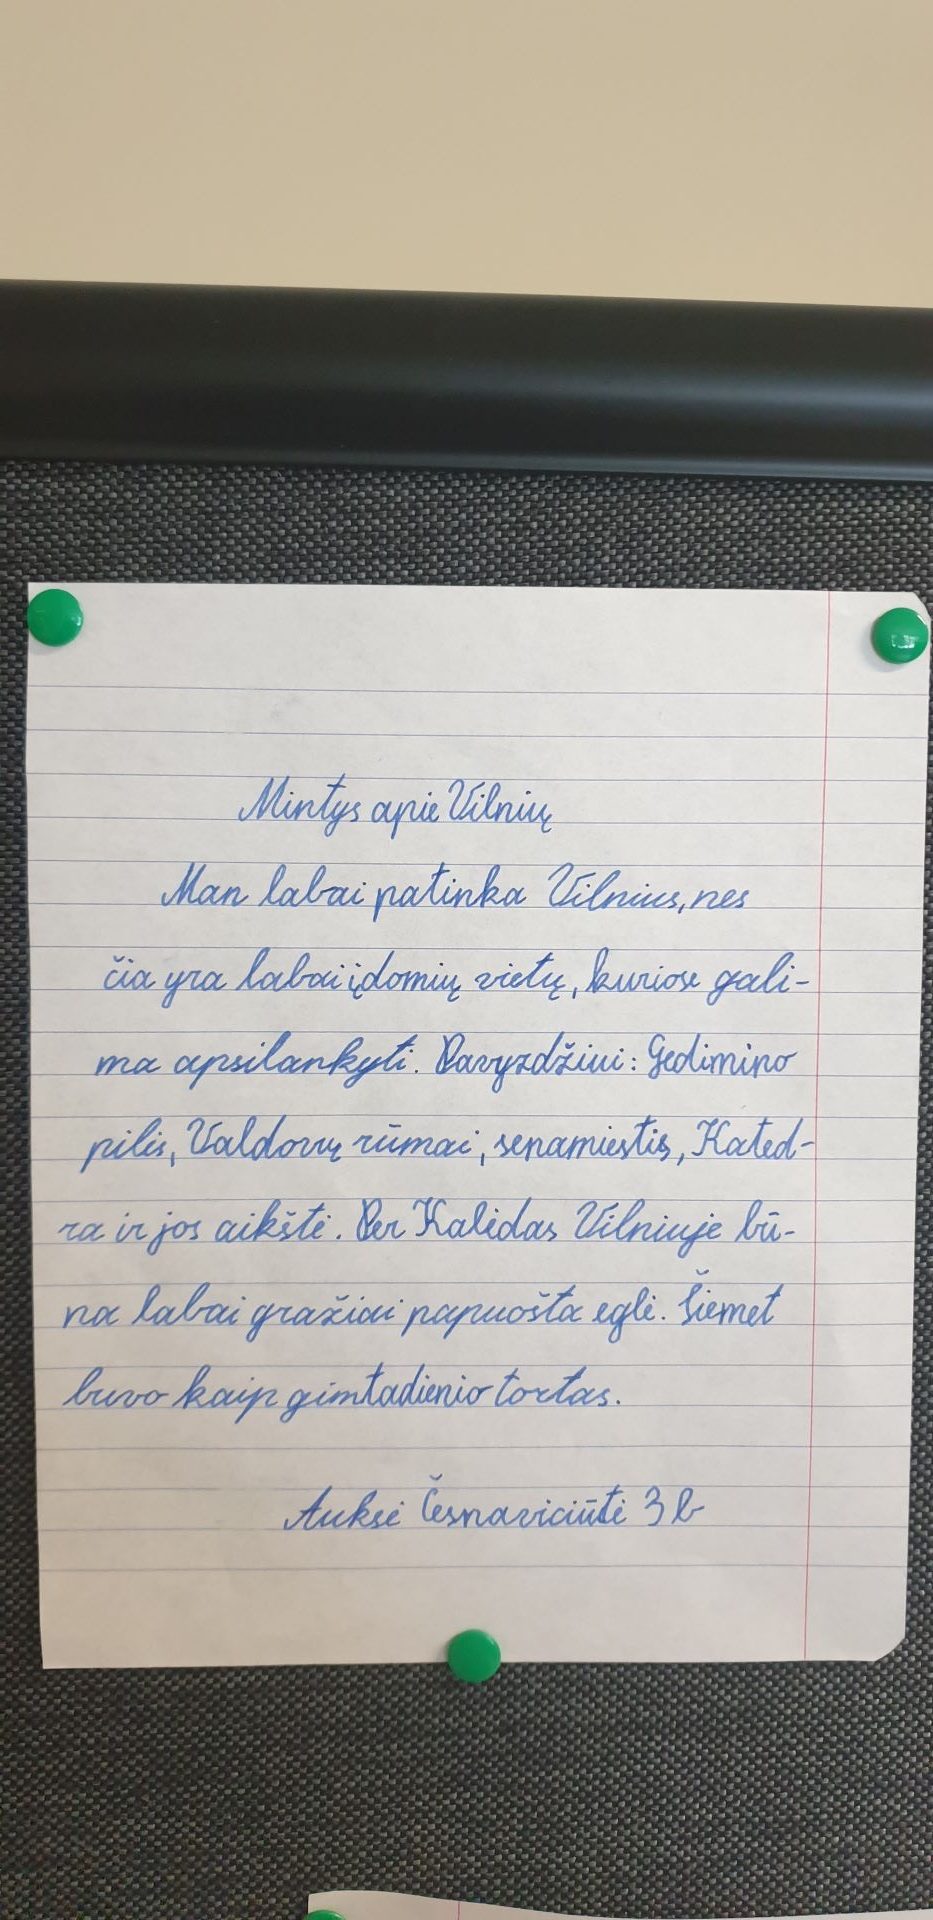 Mintys apie Vilnių
Man labai patinka Vilnius, nes
čia yra labai įdomių vietų, kuriose gali-
ma apsilankyti. Pavyzdžiui: Gedimino
pilis, Valdovų rūmai, senamiestis, Kated-
ra ir jos aikštė. Per Kalėdas Vilniuje bū-
na labai gražiai papuošta eglė. Šiemet
buvo kaip gimtadienio tortas.
Auksė Česnavičiūtė 3 b